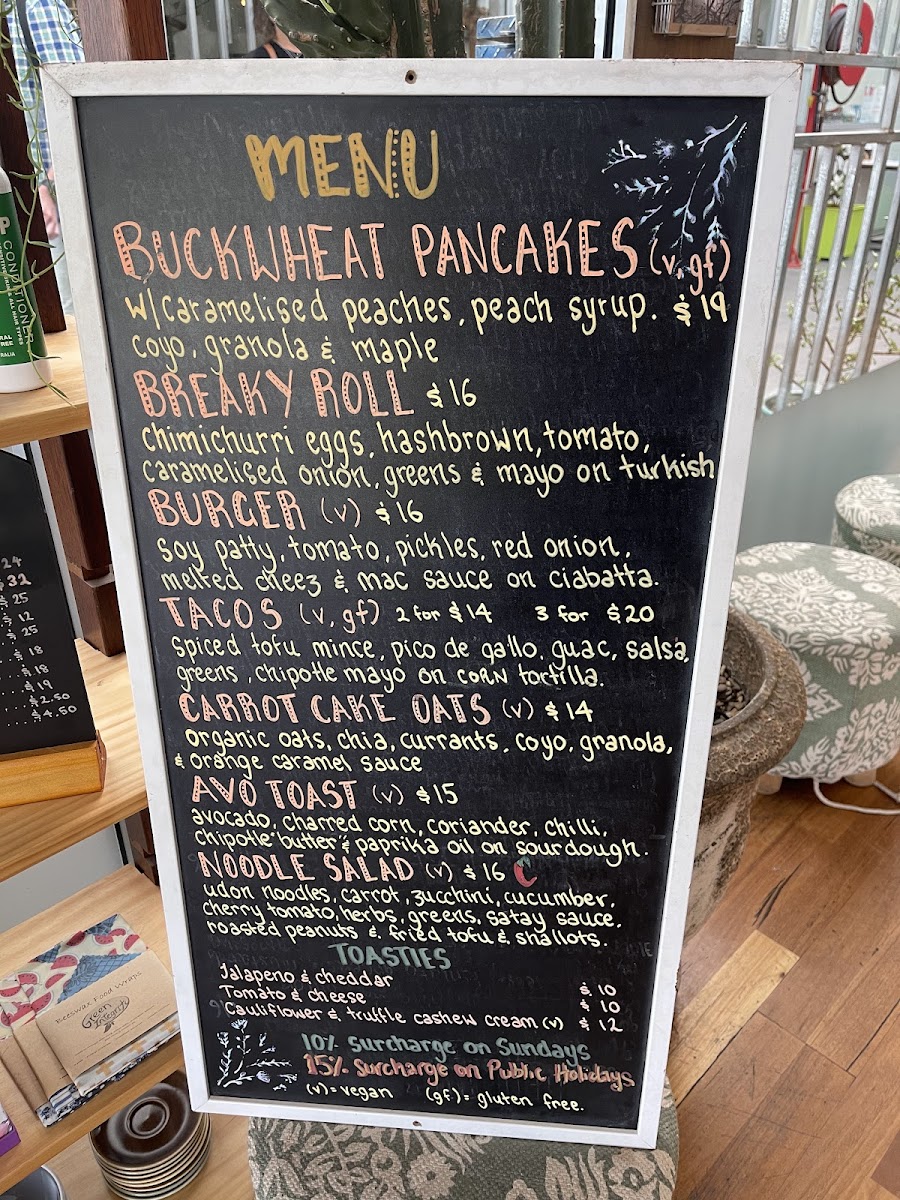 MENU
BUCKWHEAT PANCAKES (v, gf)
w/ caramelised peaches, peach syrup. $19
coyo, granola & maple
BREAKY ROLL $16
chimichurri eggs, hashbrown, tomato,
caramelised onion, greens & mayo on turkish
BURGER (v) $16
soy patty, tomato, pickles, red onion,
melted cheez & mac sauce on ciabatta.
TACOS (v, gf) 2 for $14 3 for $20
spiced tofu mince, pico de gallo, guac, salsa,
greens, chipotle mayo on CORN tortilla.
CARROT CAKE OATS (v) $14
organic oats, chia, currants, coyo, granola,
& orange caramel sauce
AVO TOAST (v) $15
avocado, charred corn, coriander, chilli,
chipotle butter & paprika oil on sourdough.
NOODLE SALAD (v) $16
udon noodles, carrot, zucchini, cucumber,
cherry tomato, herbs, greens, satay sauce,
roasted peanuts & fried tofu & shallots.
TOASTIES
Jalapeno & cheddar $10
Tomato & cheese $10
Cauliflower & truffle cashew cream (v) $12
10% surcharge on Sundays
15% surcharge on Public Holidays
(v) = vegan (gf) = gluten free.
P
CONDITIONER
ALL HAIR TYPES
24
$32
$25
$12
$25
$18
$18
$19
$2.50
$4.50
Beeswax Food Wraps
Green